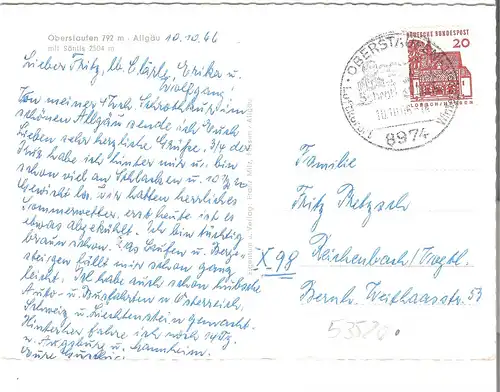 Oberstaufen 792 m · Allgäu
mit Säntis 2504 m
10.10.66
Lieber Fritz, lb. Erika u.
Wolfgang!
Von meiner Schrothkur im
schönen Allgäu sende ich Euch
Lieben sehr herzliche Grüße. 3/4 der
Kur habe ich hinter mir u. bin
schon viel an Schlacken u. 10
Gewicht los. Wir hatten herrliches
Sommerwetter, erst heute ist es
etwas abgekühlt. Ich bin tüchtig
braun schon. Das Laufen u. Berg-
steigen fällt mir schon ganz
leicht. Ich habe auch schon hübsche
Auto- u. Busfahrten n. Österreich,
Schweiz u. Liechtenstein gemacht.
Hinterher fahre ich noch
n. Augsburg u. Mannheim.
Eure
DEUTSCHE BUNDESPOST
20
LORSCH/HESSEN
OBERSTAUFEN
8974
Familie
Fritz
Reichenbach/Vogtl.
Bernh. Weißhaarstr. 53
X 98
53520